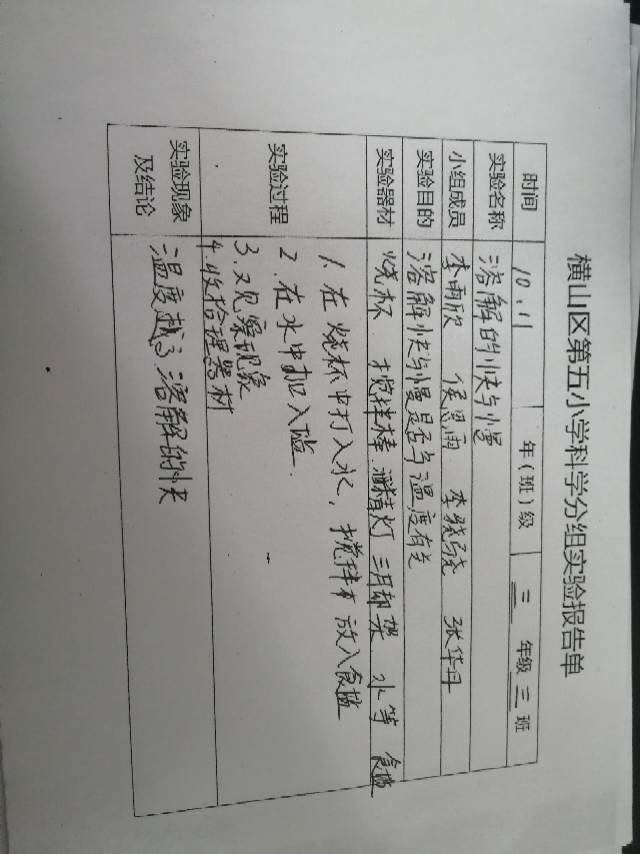 横山区第五小学科学分组实验报告单
时间 10.11 年(班)级 三 年级 三 班
实验名称 溶解的快与慢
小组成员 李雨欣 侯思雨 李晓 张华丹
实验目的 溶解快与慢是否与温度有关
实验器材 烧杯 搅拌棒 酒精灯 三脚架 水等 食盐
实验过程
1. 在烧杯中打入水，搅拌 放入食盐
2. 在水中加入盐.
3. 观察现象
4. 收拾理器材
实验现象及结论 温度越 溶解的快